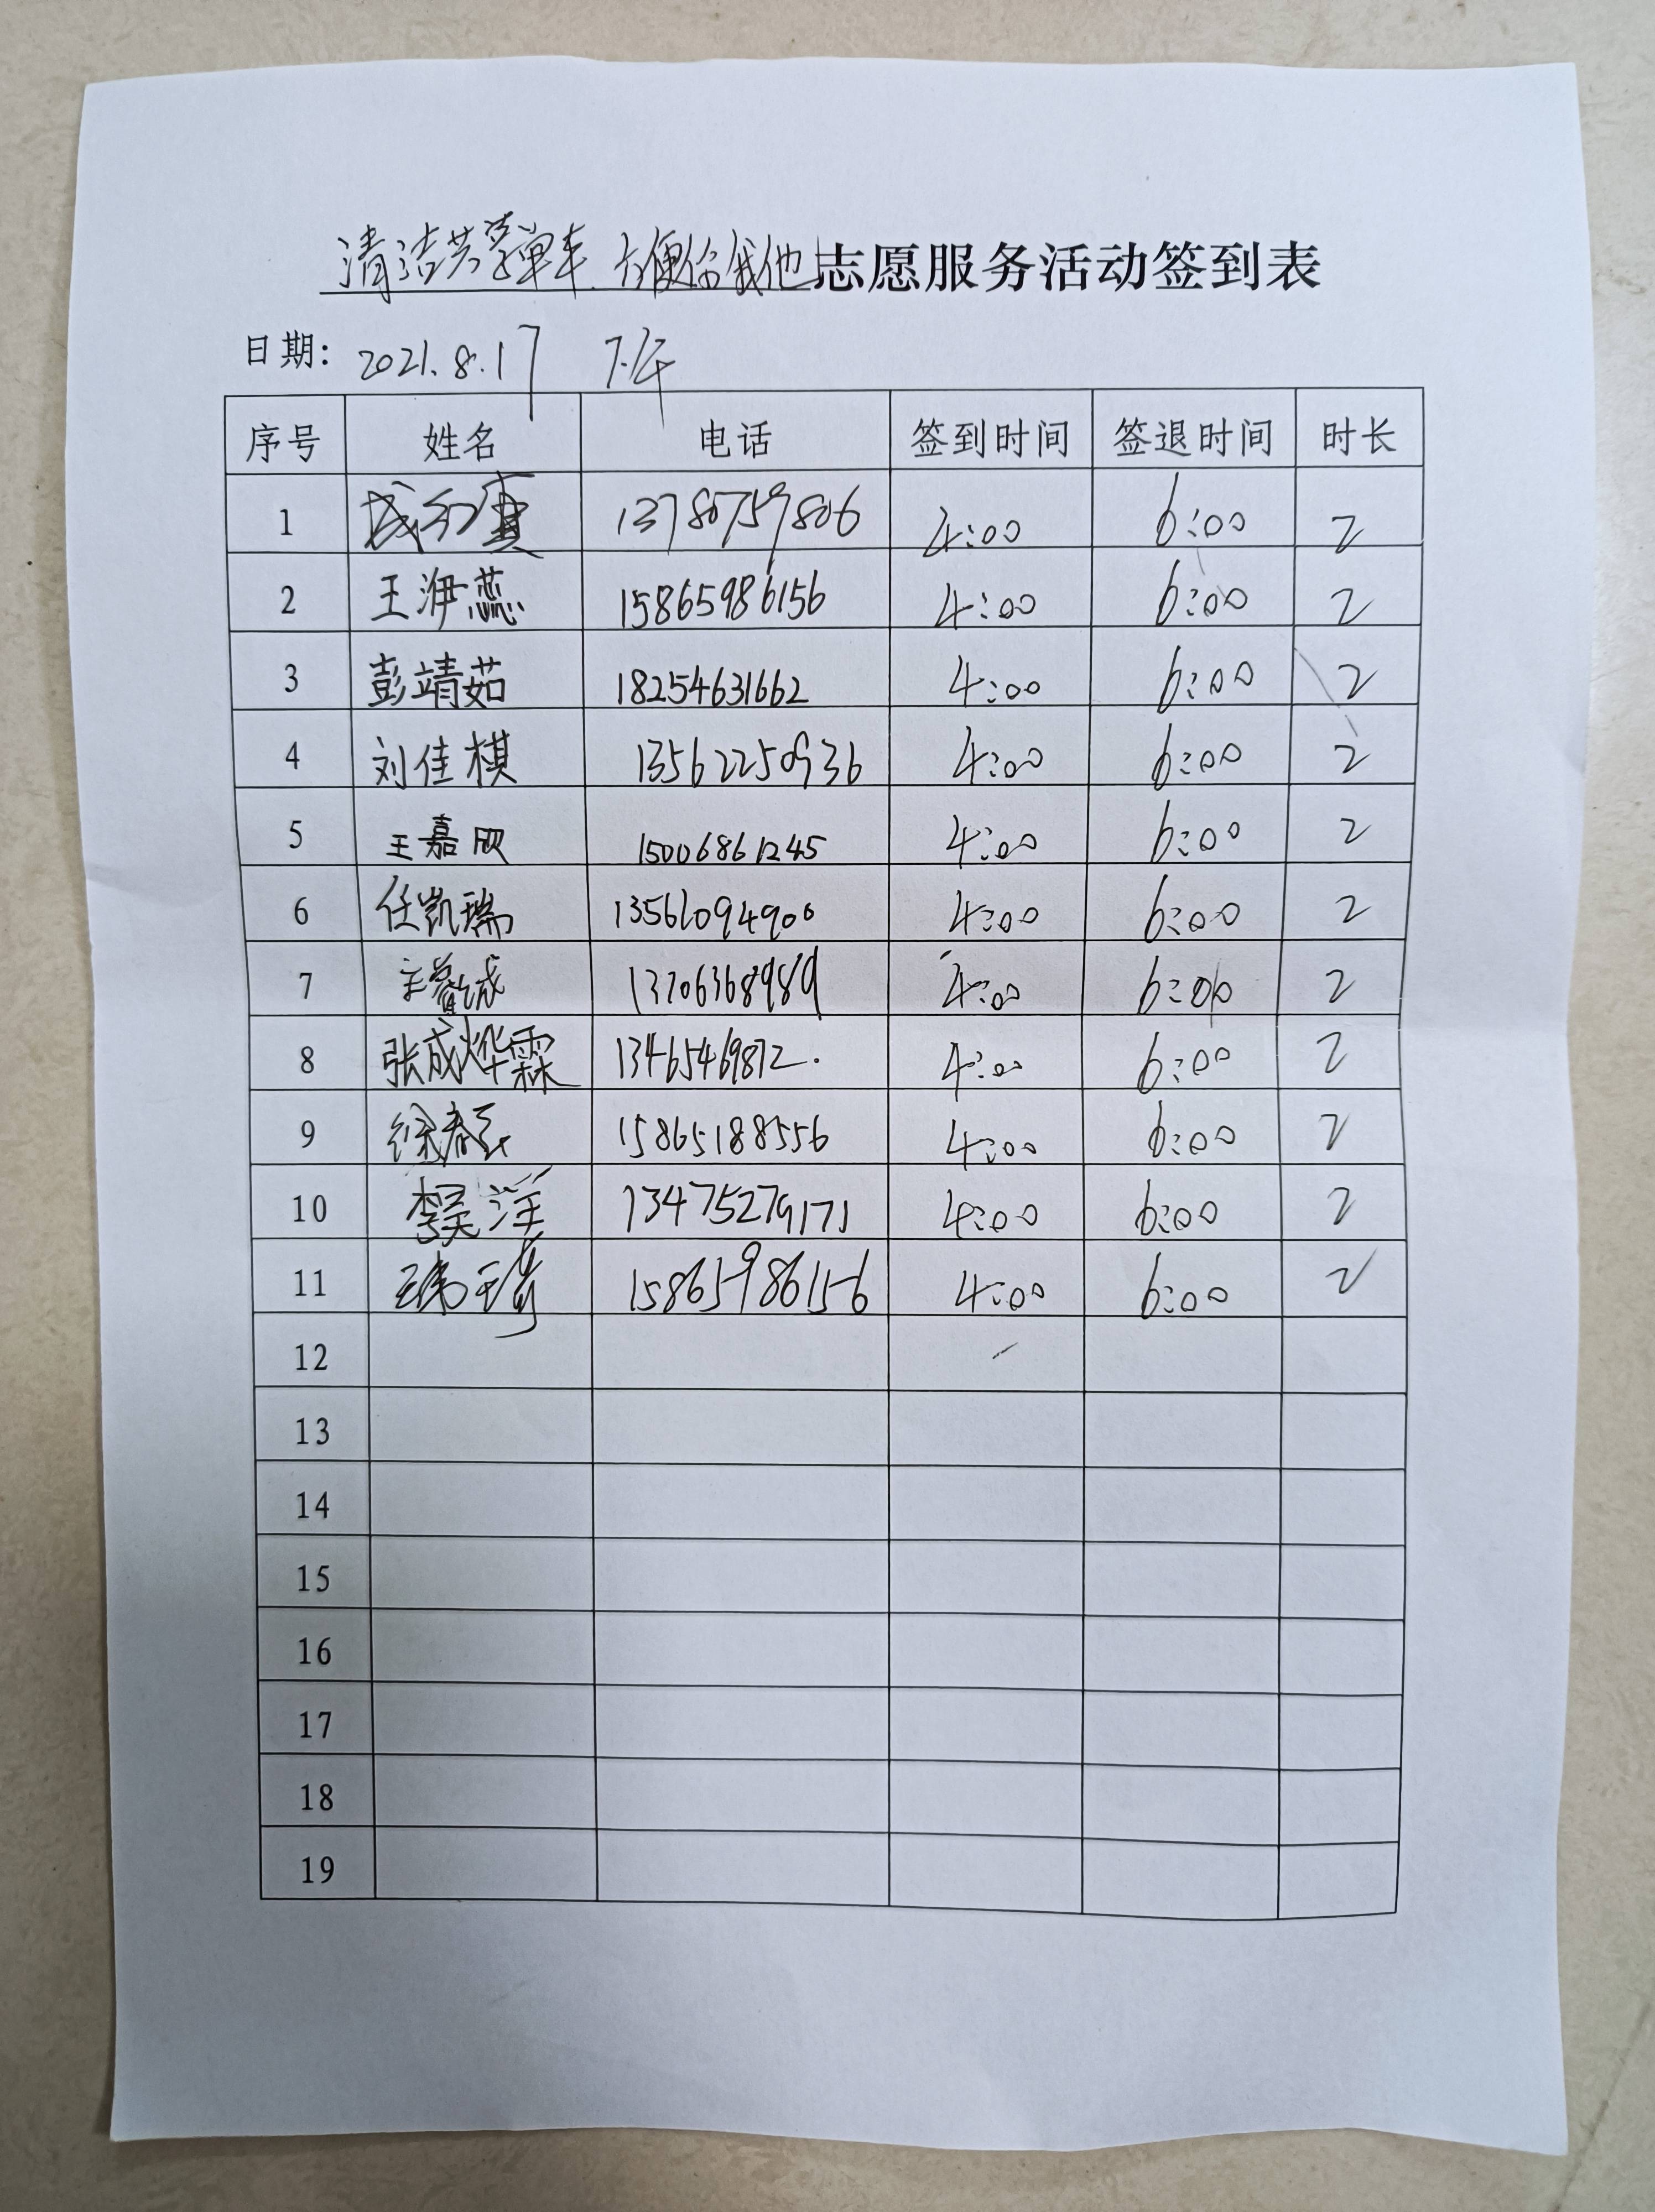 清洁共享单车 方便你我他志愿服务活动签到表
日期: 2021.8.17 下午
序号 姓名 电话 签到时间 签退时间 时长
1 13780759806 4:00 6:00 2
2 王洢蕊 15865986156 4:00 6:00 2
3 彭靖茹 18254631662 4:00 6:00 2
4 刘佳棋 13562250936 4:00 6:00 2
5 王嘉欣 15006861245 4:00 6:00 2
6 任凯瑞 13561094900 4:00 6:00 2
7 13706368989 4:00 6:00 2
8 张成烨霖 13465469872. 4:00 6:00 2
9 徐春 15865188556 4:00 6:00 2
10 李昊洋 13475279171 4:00 6:00 2
11 15865986156 4:00 6:00 2
12
13
14
15
16
17
18
19